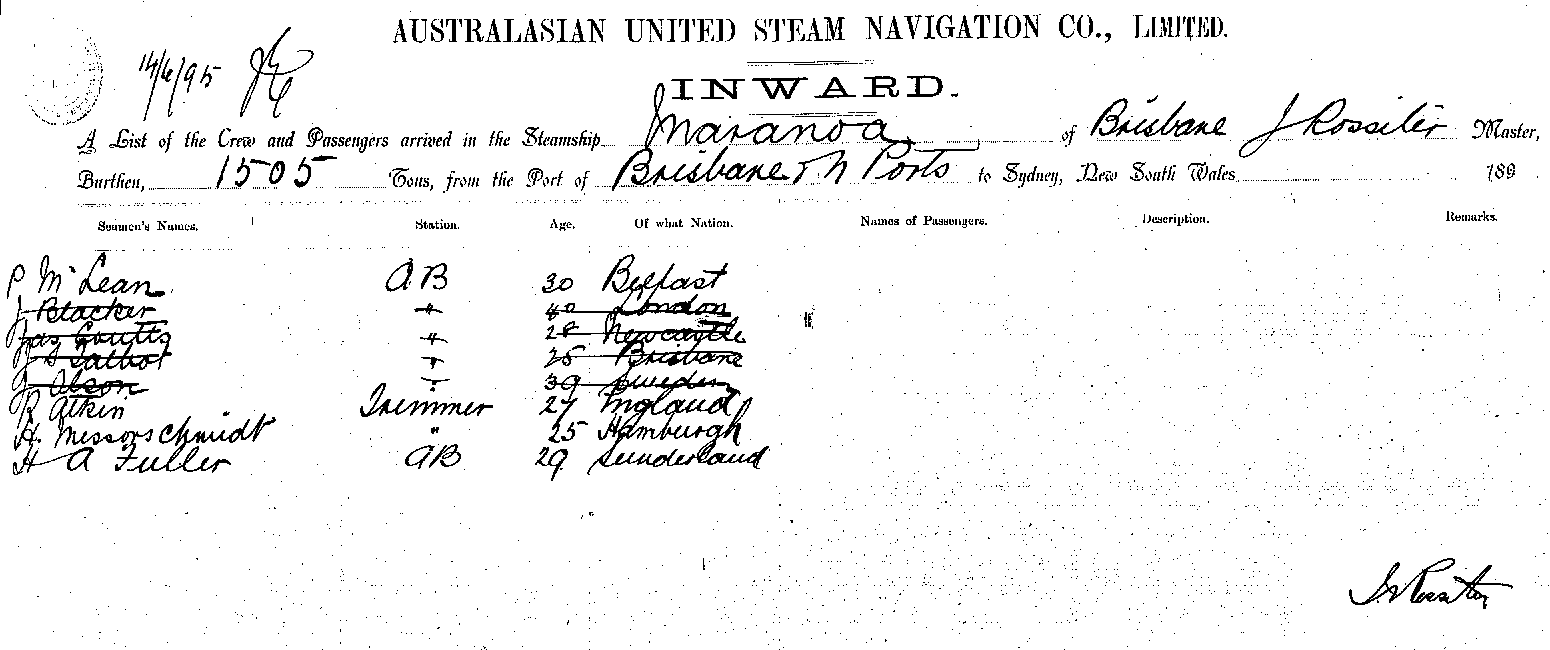 AUSTRALASIAN UNITED STEAM NAVIGATION CO., LIMITED.
14/6/95
INWARD.
A List of the Crew and Passengers arrived in the Steamship Maranoa of Brisbane J Rossiter Master,
Burthen, 1505 Tons, from the Port of Brisbane & N Ports to Sydney, New South Wales 189
Seamen's Names. Station. Age. Of what Nation. Names of Passengers. Description. Remarks.
P McLean AB 30 Belfast
J Blacker " 40 London
Jas Coutts " 28 Newcastle
J Talbot " 25 Brisbane
J Olson " 39 Sweden
R Atkin Trimmer 27 England
H. Messorschmidt " 25 Hamburgh
H A Fuller AB 29 Sunderland
J Rossiter